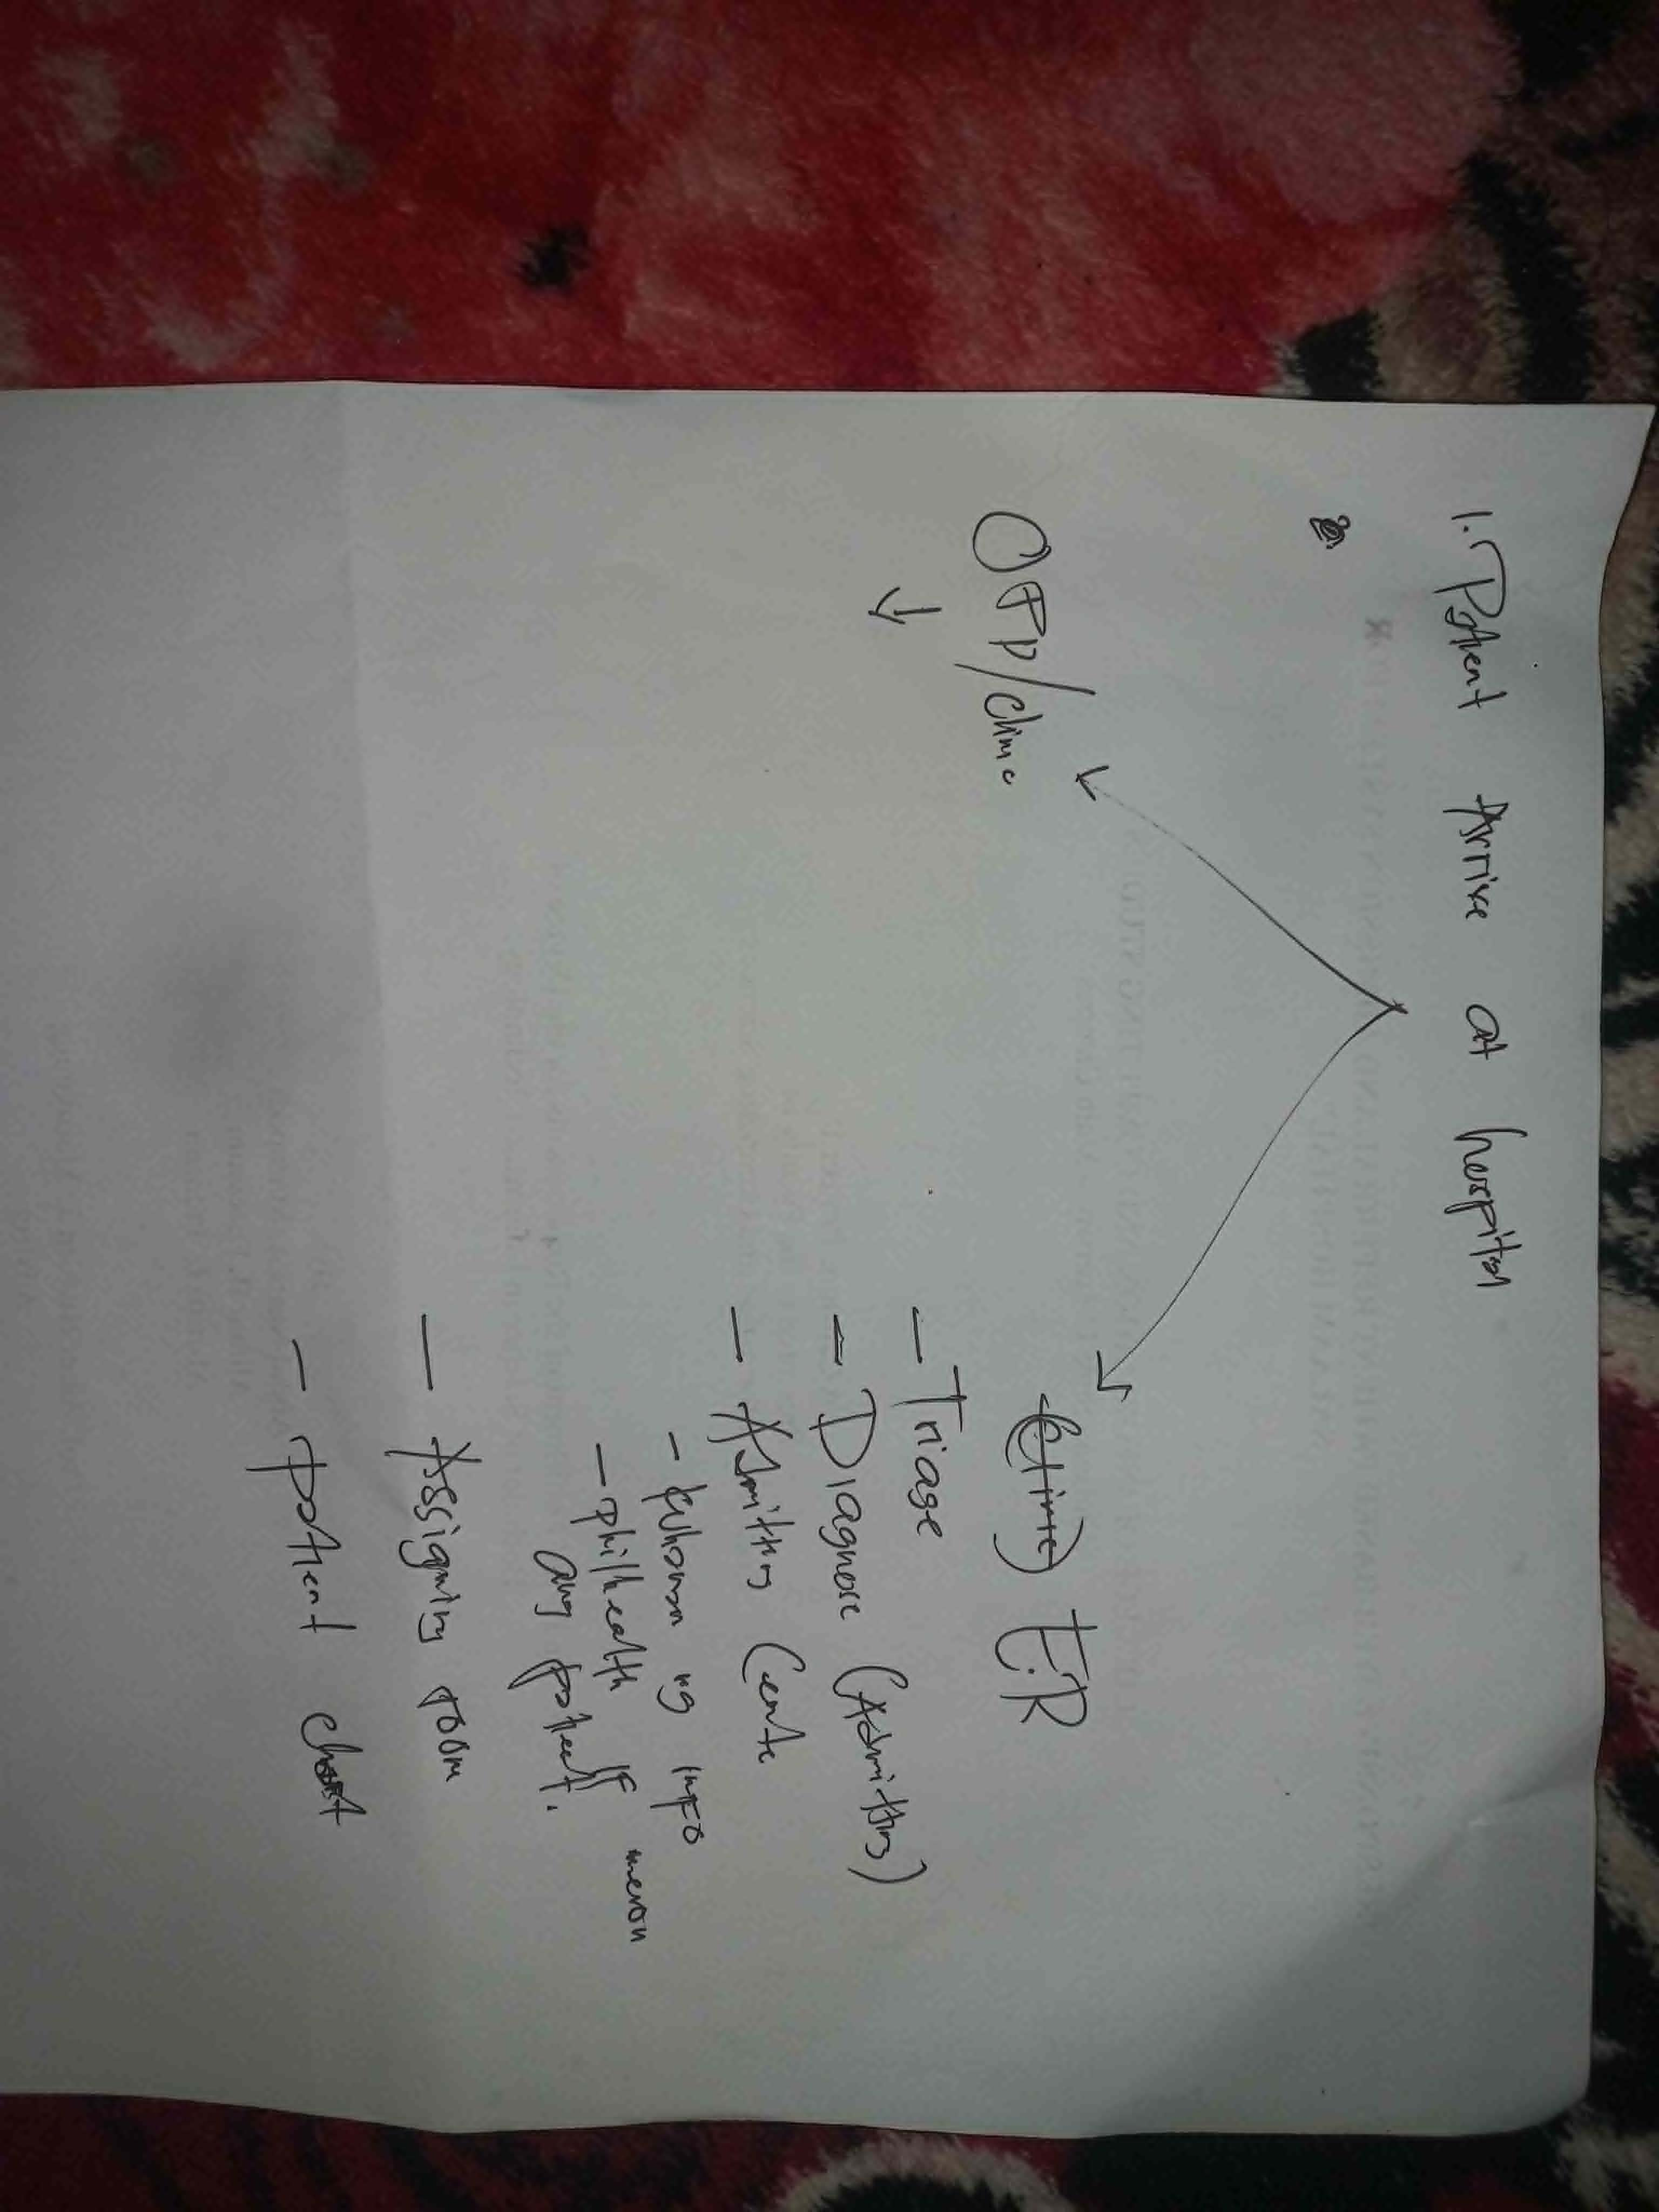 1. Patient Arrive at hospital
OPD/clinic
E.R
- Triage
- Diagnose (Admitting)
- Admitting Cente
- kuhanan ng info
- philhealth if meron
ang patient.
- Assigning room
- patient chart